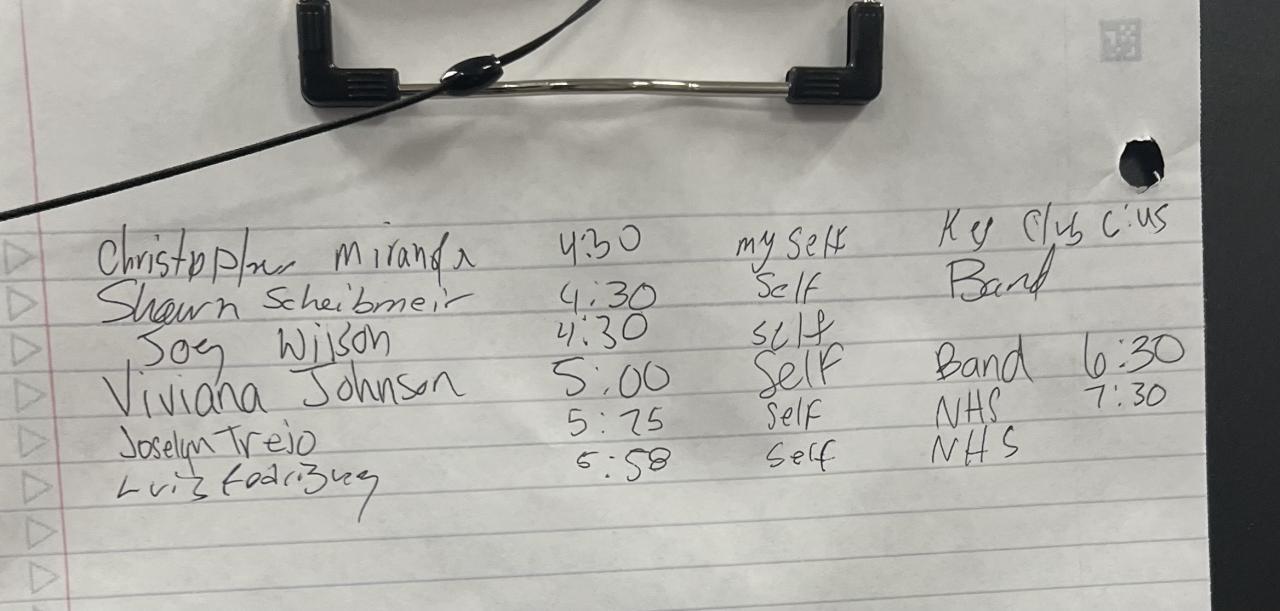 Christopher Miranda 4:30 my self Key Club
Shawn Scheibmeir 4:30 Self Band
Joey Wilson 4:30 self
Viviana Johnson 5:00 Self Band 6:30
Joselyn Trejo Self NHS 7:30
Luis Rodriguez 5:58 Self NHS